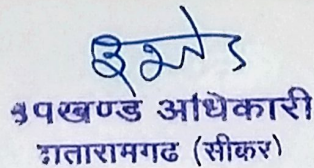 उपखण्ड अधिकारी
दातारामगढ (सीकर)